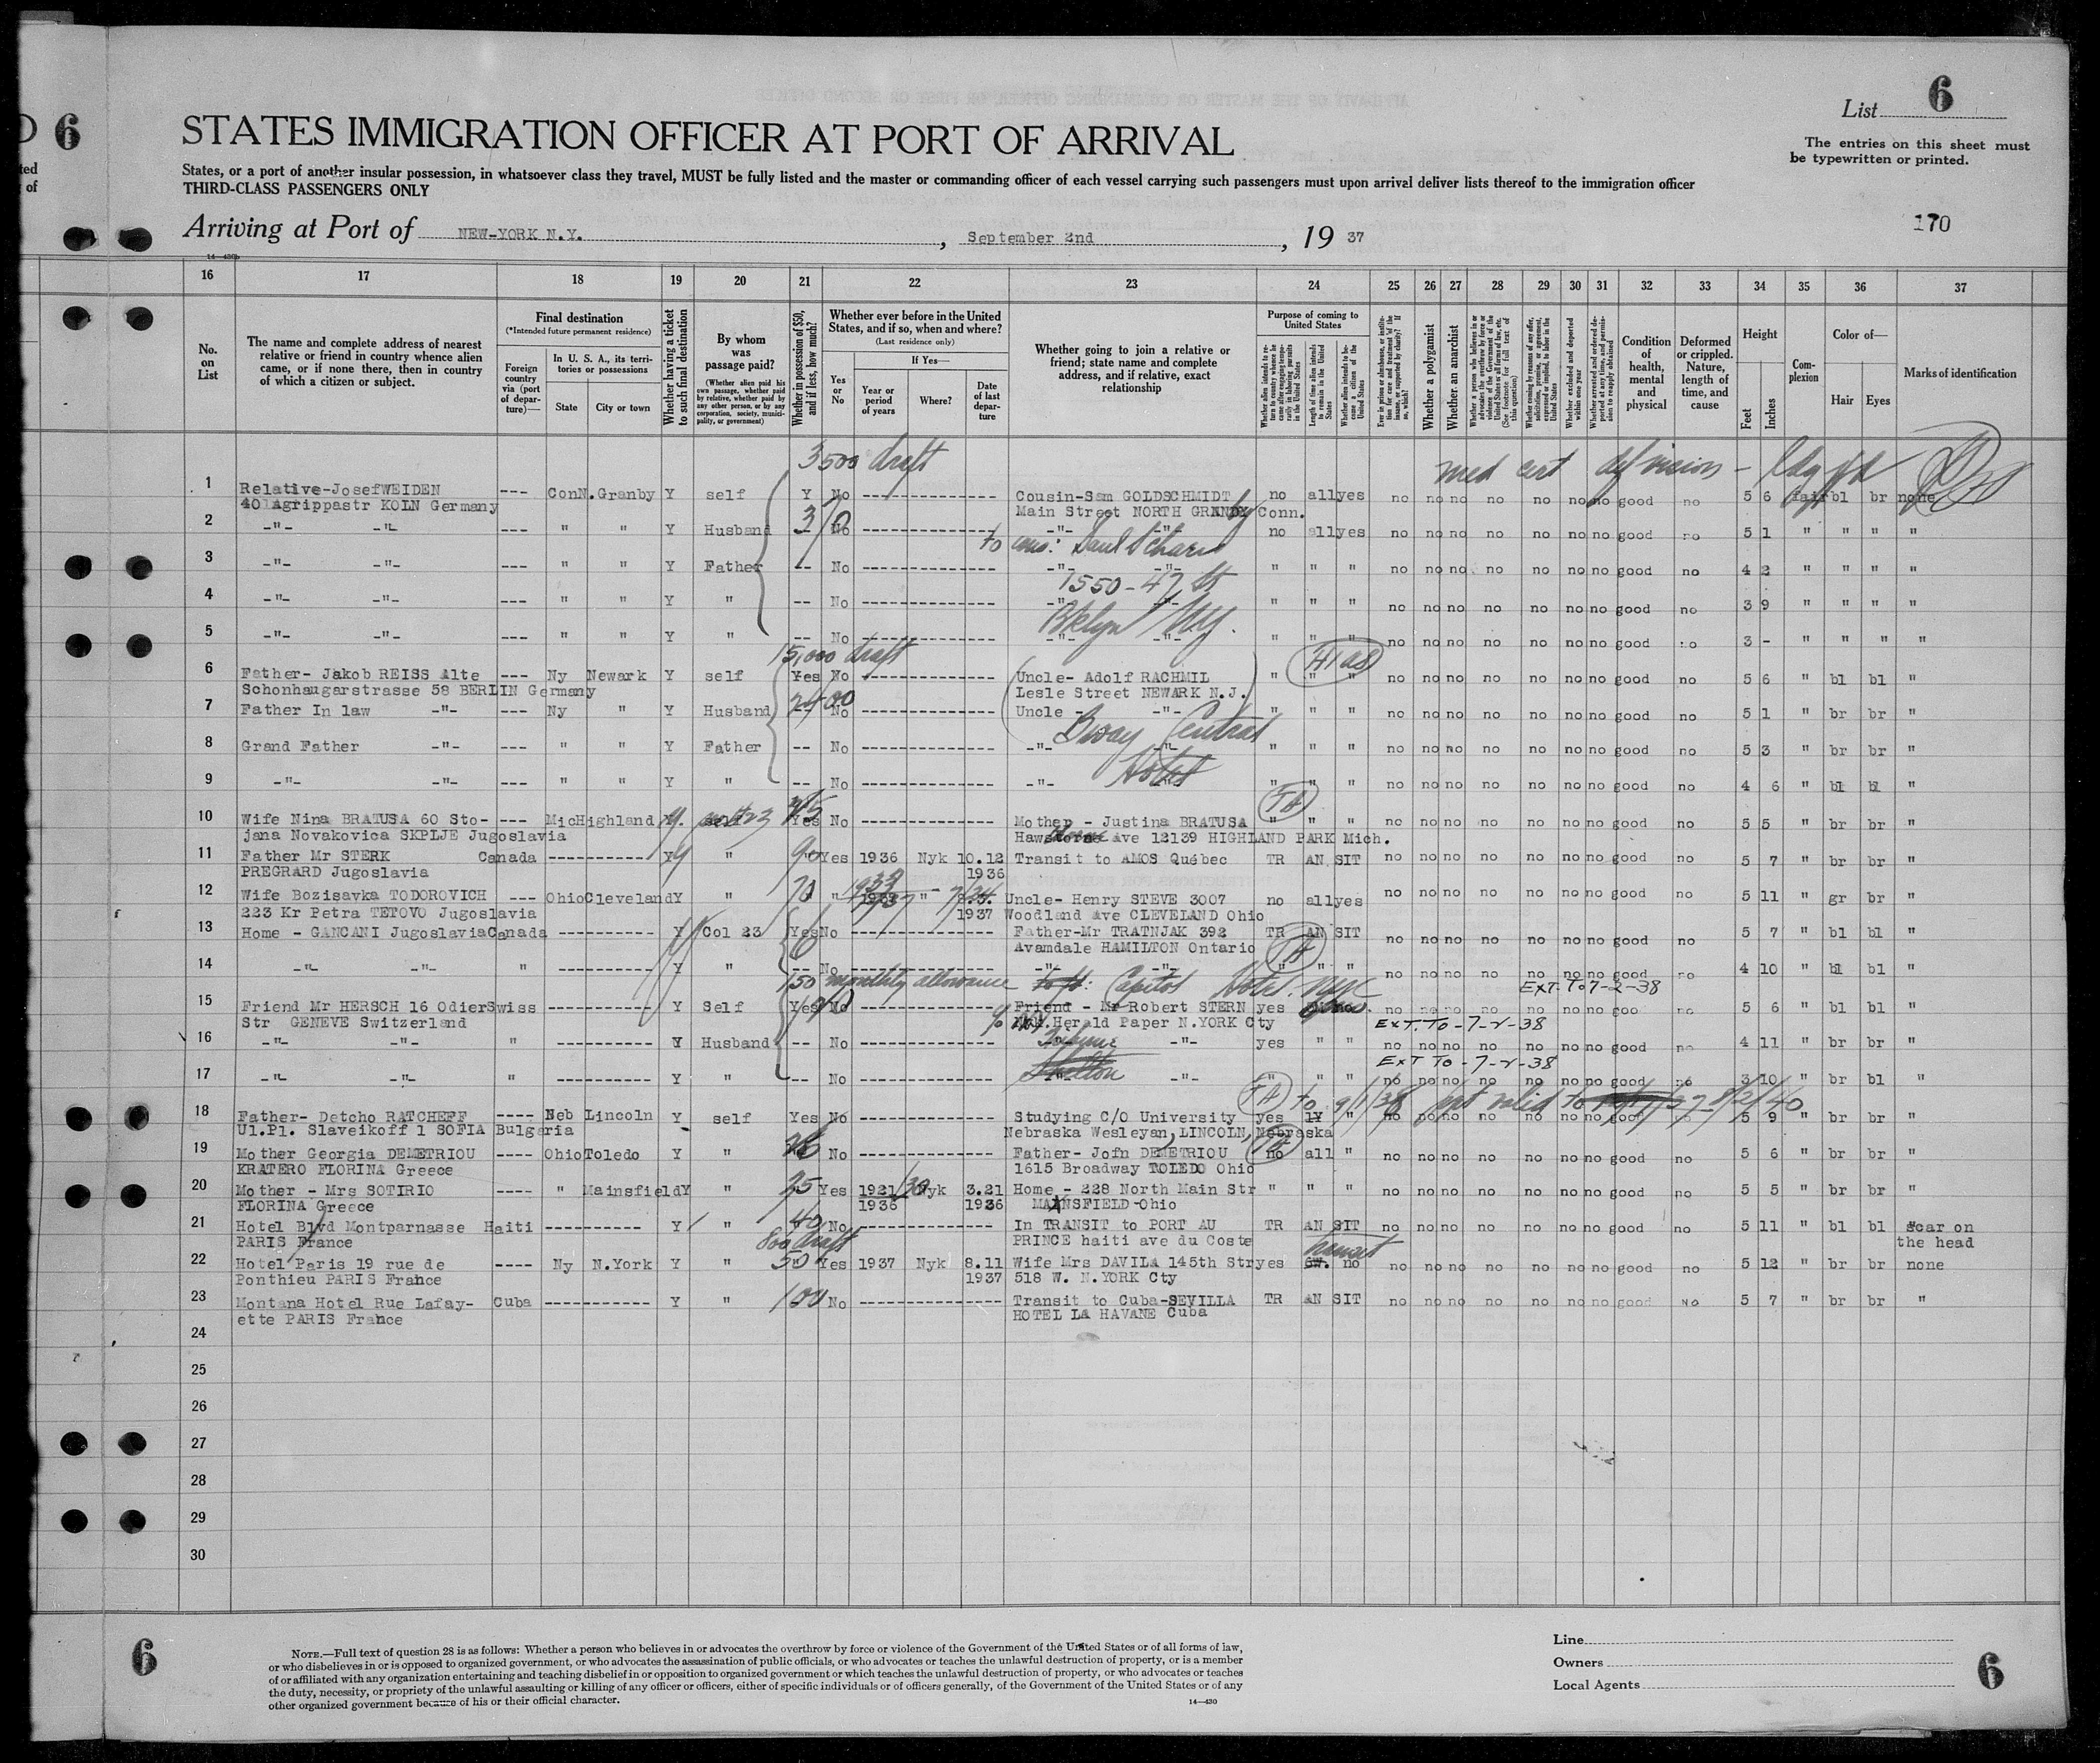 6
List 6
STATES IMMIGRATION OFFICER AT PORT OF ARRIVAL
The entries on this sheet must
be typewritten or printed.
States, or a port of another insular possession, in whatsoever class they travel, MUST be fully listed and the master or commanding officer of each vessel carrying such passengers must upon arrival deliver lists thereof to the immigration officer
THIRD-CLASS PASSENGERS ONLY
170
Arriving at Port of NEW-YORK N.Y. , September 2nd , 19 37
16 17 18 19 20 21 22 23 24 25 26 27 28 29 30 31 32 33 34 35 36 37
No. on List
The name and complete address of nearest relative or friend in country whence alien came, or if none there, then in country of which a citizen or subject.
Final destination
(*Intended future permanent residence)
Foreign country via (port of departure)—
In U. S. A., its territories or possessions
State City or town
Whether having a ticket to such final destination
By whom was passage paid?
(Whether alien paid his own passage, whether paid by relative, whether paid by any other person, or by any corporation, society, municipality, or government)
Whether in possession of $50, and if less, how much?
Whether ever before in the United States, and if so, when and where?
(Last residence only)
Yes or No
If Yes—
Year or period of years Where? Date of last departure
Whether going to join a relative or friend; state name and complete address, and if relative, exact relationship
Purpose of coming to United States
Length of time alien intends to remain in the United States
Whether alien intends to become a citizen of the United States
Whether a polygamist
Whether an anarchist
Condition of health, mental and physical
Deformed or crippled. Nature, length of time, and cause
Height
Feet Inches
Complexion
Color of—
Hair Eyes
Marks of identification
3500 draft
med cert def vision -
1 Relative-JosefWEIDEN --- ConN.Granby Y self Y No Cousin-Sam GOLDSCHMIDT no allyes no no no no no no no good no 5 6 fair bl br none
40 Agrippastr KOLN Germany Main Street NORTH GRANBY Conn.
2 -"- -"- --- " " Y Husband -- No -"- -"- no allyes no no no no no no no good no 5 1 " " " "
3 -"- -"- --- " " Y Father -- No -"- -"- " " " no no no no no no no good no 4 2 " " " "
1550-47 St
4 -"- -"- --- " " Y " -- No " " " no no no no no no no good no 3 9 " " " "
Bklyn N.Y.
5 -"- -"- --- " " Y " -- No -"- -"- " " " no no no no no no no good no 3 - " " " "
15,000 draft
Hias
6 Father- Jakob REISS Alte --- Ny Newark Y self Yes No Uncle- Adolf RACHMIL " " " no no no no no no no good no 5 6 " bl bl "
Schonhaugarstrasse 58 BERLIN Germany Lesle Street NEWARK N.J.
7 Father In law -"- --- Ny " Y Husband -- No Uncle - -"- " " " no no no no no no no good no 5 1 " br br "
Bway Central
8 Grand Father -"- --- " " Y Father -- No -"- -"- " " " no no no no no no no good no 5 3 " br br "
Hotel
9 -"- -"- --- " " Y " -- No -"- " " " no no no no no no no good no 4 6 " bl bl "
10 Wife Nina BRATUSA 60 Sto- --- MicHighland Yes No Mother - Justina BRATUSA " " " no no no no no no no good no 5 5 " br br "
jana Novakovica SKPLJE Jugoslavia Ave 12139 HIGHLAND PARK Mich.
11 Father Mr STERK Canada Y " 90 Yes 1936 Nyk 10.12 Transit to AMOS Québec TR AN SIT no no no no no no no good no 5 7 " br br "
PREGRARD Jugoslavia 1936
12 Wife Bozisavka TODOROVICH --- OhioCleveland Y " 70 " " Uncle- Henry STEVE 3007 no allyes no no no no no no no good no 5 11 " gr br "
223 Kr Petra TETOVO Jugoslavia 1937 Woodland Ave CLEVELAND Ohio
13 Home - GANCANI JugoslaviaCanada Y Col 23 YesNo Father-Mr TRATNJAK 392 TR AN SIT no no no no no no no good no 5 7 " bl bl "
Avamdale HAMILTON Ontario
14 -"- -"- " Y " -- No -"- -"- " " " no no no no no no no good no 4 10 " bl bl "
150 monthly allowance Capitol Hotel. NYC
EXT. To 7-2-38
15 Friend Mr HERSCH 16 OdierSwiss Y Self Yes No Friend - Mr Robert STERN yes no no no no no no no goo no 5 6 " bl bl "
Str GENEVE Switzerland Herald Paper N.YORK Cty
EXT. To-7-2-38
16 -"- -"- " Y Husband -- No Tribune -"- yes " " no no no no no no no good no 4 11 " br br "
EXT To-7-2-38
17 -"- -"- " Y " -- No Shelton -"- " " " no no no no no no no good no 3 10 " br bl "
18 Father- Detcho RATCHEFF ---- Neb Lincoln Y self Yes No Studying C/O University yes 1Y " no no no no no no no good no 5 9 " br br "
Ul.Pl. Slaveikoff 1 SOFIA Bulgaria Nebraska Wesleyan, LINCOLN, Nebraska
19 Mother Georgia DEMETRIOU ---- OhioToledo Y " No Father- Jofn DEMETRIOU no all " no no no no no no no good no 5 6 " br br "
KRATERO FLORINA Greece 1615 Broadway TOLEDO Ohio
20 Mother - Mrs SOTIRIO ---- " Mainsfield Y " 25 Yes 1921/30 Nyk 3.21 Home - 228 North Main Str " " " no no no no no no no good no 5 5 " br br "
FLORINA Greece 1936 1936 MANSFIELD-Ohio
21 Hotel Blvd Montparnasse Haiti Y " 40 No In TRANSIT to PORT AU TR AN SIT no no no no no no no good no 5 11 " bl bl scar on
PARIS France PRINCE haiti ave du Coste the head
800 draft
transit
22 Hotel Paris 19 rue de ---- Ny N.York Y " 50 Yes 1937 Nyk 8.11 Wife Mrs DAVILA 145th Str yes 6W. no no no no no no no no good no 5 12 " br br none
Ponthieu PARIS France 1937 518 W. N.YORK Cty
23 Montana Hotel Rue Lafay- Cuba Y " 100 No Transit to Cuba-SEVILLA TR AN SIT no no no no no no no good No 5 7 " br br "
ette PARIS France HOTEL LA HAVANE Cuba
24
25
26
27
28
29
30
6
NOTE.—Full text of question 28 is as follows: Whether a person who believes in or advocates the overthrow by force or violence of the Government of the United States or of all forms of law,
or who disbelieves in or is opposed to organized government, or who advocates the assassination of public officials, or who advocates or teaches the unlawful destruction of property, or is a member
of or affiliated with any organization entertaining and teaching disbelief in or opposition to organized government or which teaches the unlawful destruction of property, or who advocates or teaches
the duty, necessity, or propriety of the unlawful assaulting or killing of any officer or officers, either of specific individuals or of officers generally, of the Government of the United States or of any
other organized government because of his or their official character.
14—430
Line
Owners
Local Agents
6